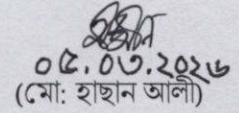 ০৫.০৩.২০২৬
(মো: হাছান আলী)